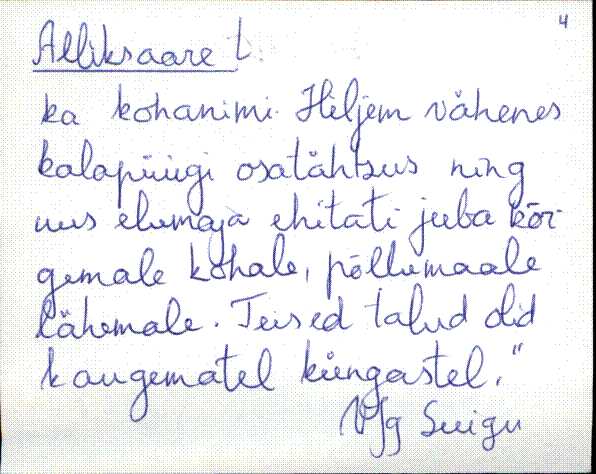 4
Alliksaare t.
ka kohanimi. Hiljem vähenes
kalapüügi osatähtsus ning
uus elumaja ehitati juba kõr-
gemale kohale, põllumaale
lähemale. Teised talud olid
kaugematel küngastel."
Vjg Suigu